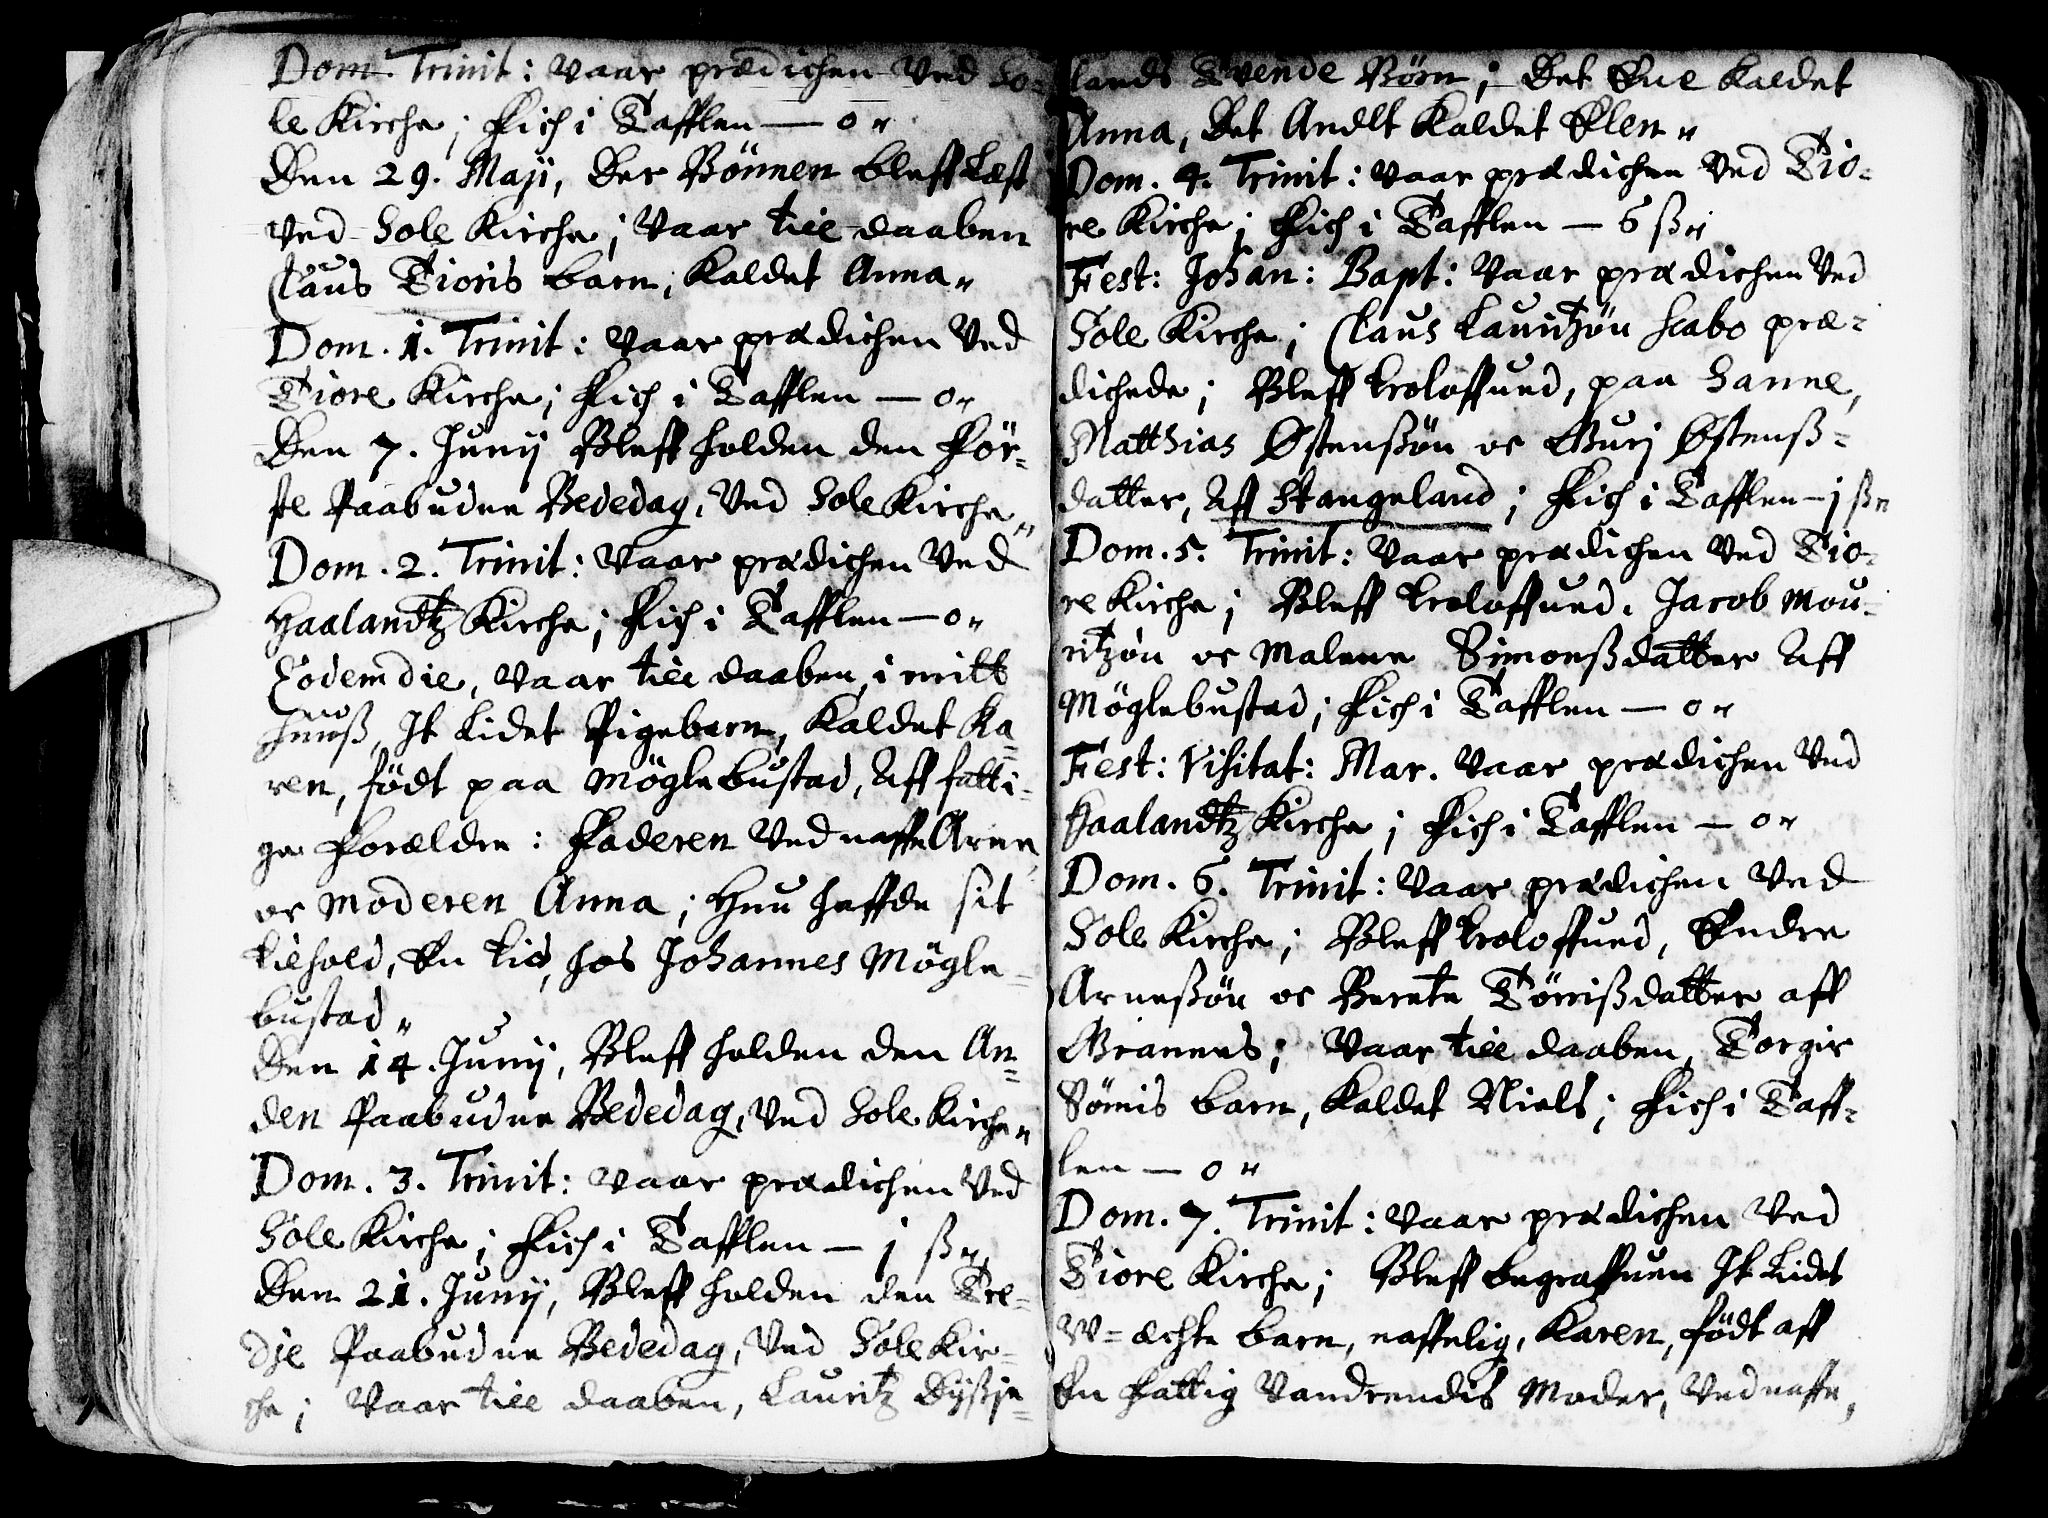 Dom. Trinit: Vaar prædichen Ved So-
le Kirche; Fich i Tafflen — 0 „
Den 29. Maji, Der Bönnen bleff Læst
Ved Sole Kirche; Vaar till daaben
Claus Tioris barn, Kaldet Anna „
Dom. 1. Trinit: Vaar prædichen Ved
Tiore Kirche; Fich i Tafflen — 0 „
Den 7. Junij Bleff holden den För-
ste Paabudne Bededag, Ved Sole Kirche „
Dom. 2. Trinit: Vaar prædichen Ved
Haalandtz Kirche; Fich i Tafflen — 0 „
Eodem die, Vaar till daaben, i mitt
Huuß, It Lidet Pigebarn, Kaldet Ka-
ren, födt paa Möglebustad, Aff fatti-
ge Forældre: Faderen Ved naffn Arne,
oc Moderen Anna; Hun haffde sit
tilhold, En tid, hos Johannes Mögle-
bustad „
Den 14. Junij, Bleff holden den An-
den Paabudne Bededag, Ved Sole Kirche „
Dom. 3. Trinit: Vaar prædichen Ved
Sole Kirche; Fich i Tafflen — j ß „
Den 21. Junij, Bleff holden den Tre-
dje Paabudne Bededag, Ved Sole Kir-
che; Vaar till daaben, Lauritz Dysje-
lands Tvende Börn; Det Ene Kaldet
Anna, Det Andet Kaldet Elen „
Dom. 4. Trinit: Vaar prædichen Ved Tio-
re Kirche; Fich i Tafflen — 6 ß „
Fest: Johan: Bapt: Vaar prædichen Ved
Sole Kirche; Claus Lauritzön Scabo præ-
dichede; Bleff troloffued, paa Sanne,
Matthias Østensßön oc Guri Østenß-
datter, Aff Stangeland; Fich i Tafflen — j ß „
Dom. 5. Trinit: Vaar prædichen Ved Tio-
re Kirche; Bleff troloffued, Jacob Mou-
ritzön oc Malene Simonßdatter Aff
Möglebustad; Fich i Tafflen — 0 „
Fest: Visitat: Mar. Vaar prædichen Ved
Haalandtz Kirche; Fich i Tafflen — 0 „
Dom. 6. Trinit: Vaar prædichen Ved
Sole Kirche; Bleff troloffued, Endre
Arneßön oc Berete Törrißdatter aff
Grannes; Vaar till daaben, Torger
Sömis barn, Kaldet Niels; Fich i Taff-
len — 0 „
Dom. 7. Trinit: Vaar prædichen Ved
Tiore Kirche; Bleff begraffuen It Lidet
W-ächte barn, naffnlig, Karen, födt aff
En Fattig Vandrendis Moder, Ved naffn,